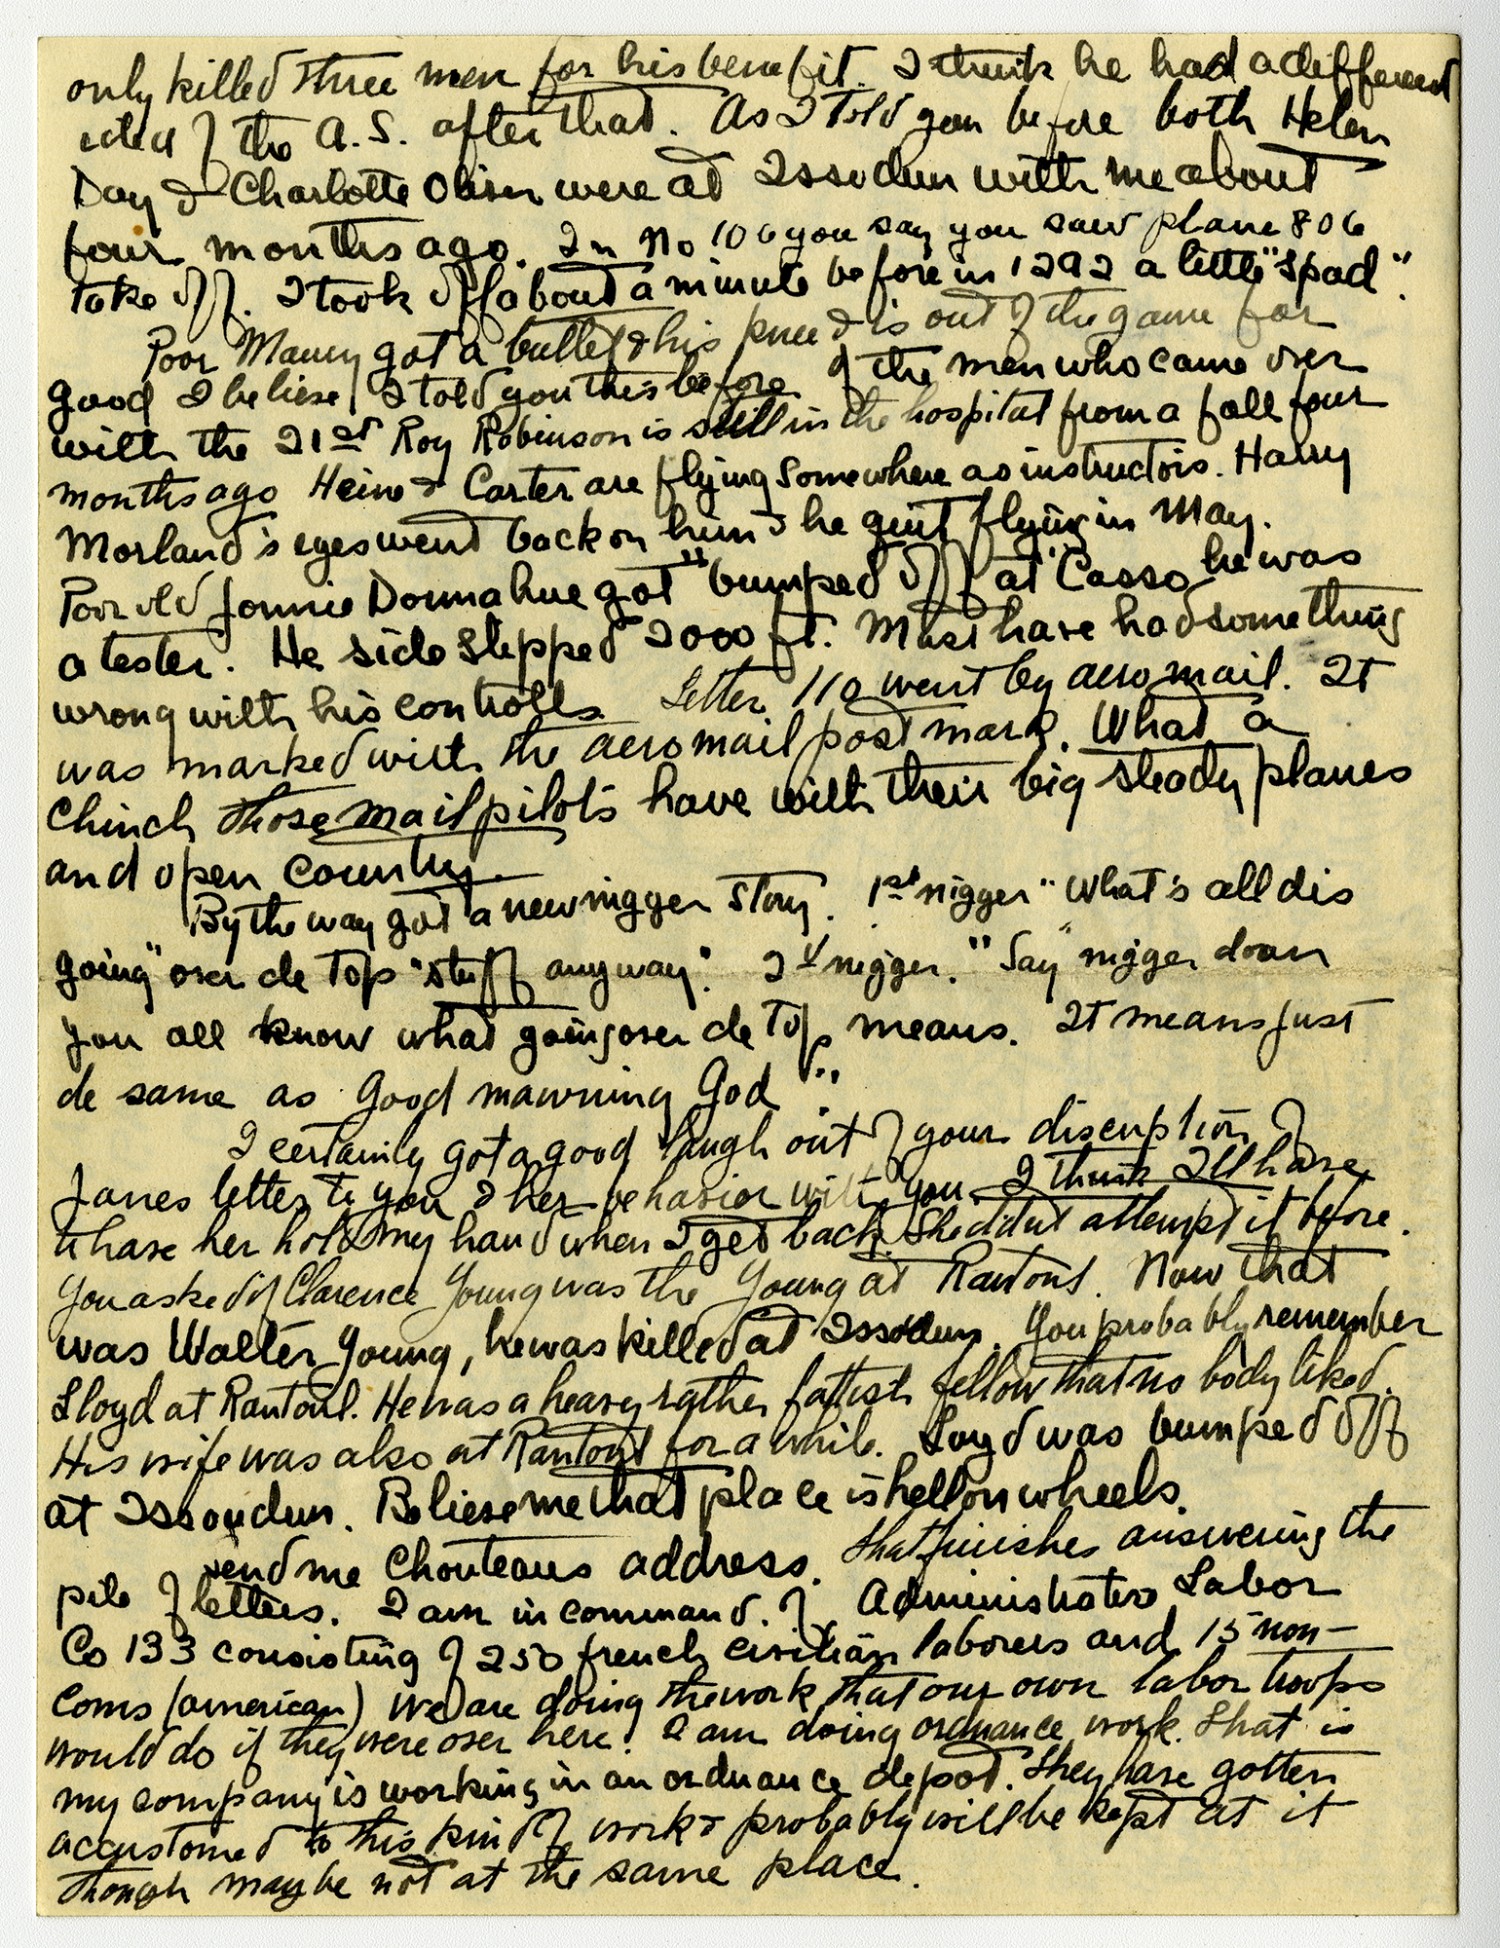 only killed three men for his benefit. I think he had a different
idea of the A.S. after that. As I told you before both Helen
Day & Charlotte Olsen were at Issodun with me about
four months ago. In No 106 you say you saw plane 806
take off. I took off about a minute before in 1292 a little "spad".
Poor Maury got a bullet & his knee & is out of the game for
good I believe, I told you this before. Of the men who came over
with the 21st Roy Robinson is still in the hospital from a fall four
months ago Heine & Carter are flying somewhere as instructors. Harry
Morland's eyes went back on him & he quit flying in May.
Poor old Jonnie Donnahue got "bumped off" at Casso he was
a tester. He side slipped 2000 ft. Must have had something
wrong with his controlls. Letter 110 went by aero mail. It
was marked with the aero mail post mark. What a
Chinch those mail pilots have with their big steady planes
and open country.
By the way got a new nigger story. 1st nigger "What's all dis
going" over de top "stuff anyway". 2d nigger. "Say" nigger doan
you all know what going over de top means. It means just
de same as Good mawning God".
I certainly got a good laugh out of your discuption of
Janes letter to you & her behavior with you. I think Ill have
to have her hold my hand when I get back. She didnt attempt it before.
You asked if Clarence Young was the Young at Rantoul. Now that
was Walter Young, he was killed at Issodun. You probably remember
Lloyd at Rantoul. He was a heavy rather fattish fellow that no body liked.
His wife was also at Rantoul for a while. Loyd was bumped off
at Issoudun. Believe me that place is hell on wheels.
send me Chouteaus address. That finishes answering the
pile of letters. I am in command. of Administrative Labor
Co 133 consisting of 250 french civilian laborers and 15 non-
coms (american) We are doing the work that our own labor troops
would do if they were over here. I am doing ordnance work. That is
my company is working in an ordnance depot. They have gotten
accustomed to this kind of work & probably will be kept at it
though maybe not at the same place.